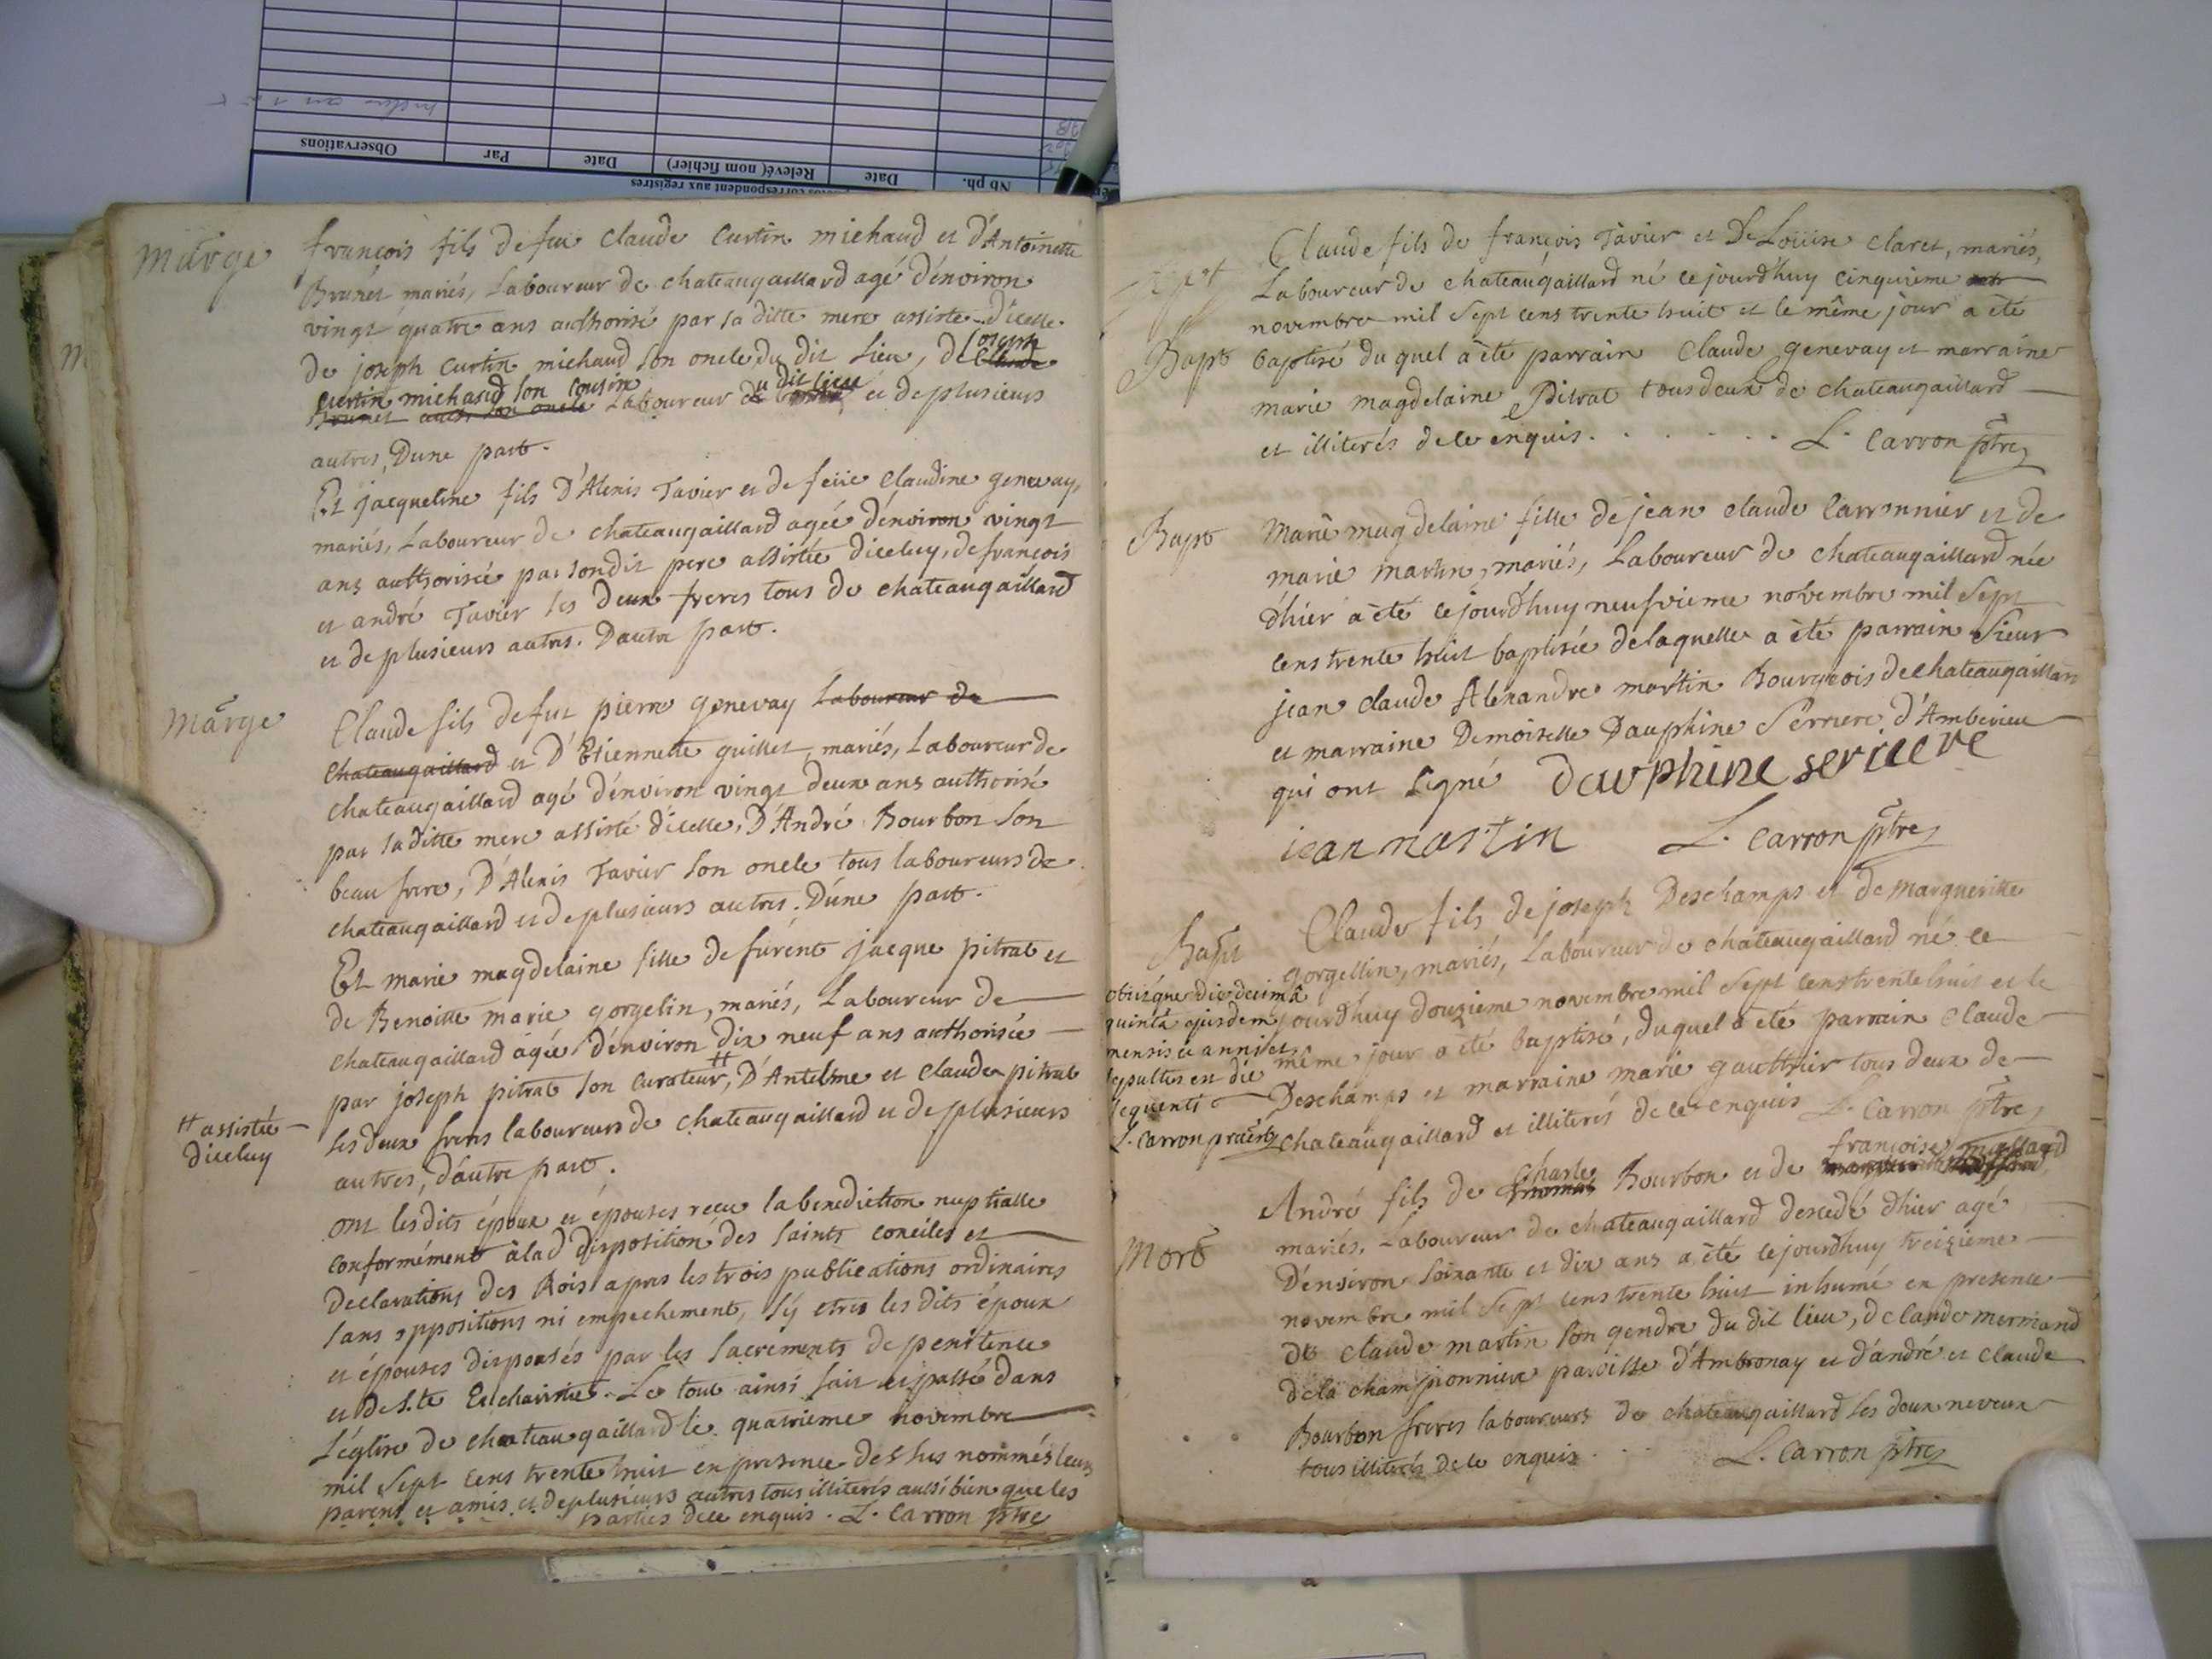 Observations
Par
Date
Relevé( nom fichier)
Date
Nb ph.
correspondent aux registres
Marge
françois fils de feu Claude Curtin michaud et d'Antoinette
Brunet mariés, Laboureur de chateaugaillard agé d'énviron
vingt quatre ans authorisé par sa ditte mere assisté d'icelle
de joseph Curtin michaud son oncle du dit Lieu, de joseph Claude
Curtin michaud son cousin
Brunet aussi son oncle Laboureur du dit lieu et de plusieurs
autres, Dune part.
Et jacqueline fils D'Alexis Tavier et de feüe Claudine genevay,
mariés, Laboureur de chateaugaillard agée d'énviron vingt
ans authorisée par sondit pere assistée diceluy, de françois
et andré Tavier ses deux freres tous de chateaugaillard
et de plusieurs autres. Dautre part.
Marge
Claude fils de fut pierre genevay Laboureur de
chateaugaillard et D'Etiennette guillet, mariés, Laboureur de
chateaugaillard agé d'énviron vingt deux ans authorisé
par saditte mere assisté d'icelle, D'André Bourbon son
beau frere, D'Alexis Tavier son oncle tous laboureurs de
chateaugaillard et de plusieurs autres. Dune part.
Et marie magdelaine fille de fürent jacque pitrat et
de Benoitte marie gorgelin, mariés, Laboureur de
chateaugaillard agée d'énviron dix neuf ans authorisée
par joseph pitrat son curateur, # D'Antelme et Claude pitrat
# assistée
diceluy
ses deux freres laboureurs de chateaugaillard et de plusieurs
autres, d'autre part.
ont lesdits époux et épouses reçu la benediction nuptialle
conformément à lad disposition des saints conciles et
declarations des Rois apres les trois publications ordinaires
sans oppositions ni empechement, s'y etres les dits époux
et épouses disposés par les sacrements de penitence
et de s.te Eucharistie. Le tout ainsi fait et passé dans
L'église de chateaugaillard le quatrieme novembre
mil sept cens trente huit en presence des sus nommés leurs
parens et amis et de plusieurs autres tous illiterés aussi bien que les
parties de ce enquis. L. Carron ptre
Claude fils de françois Tavier et De Loüise claret, mariés,
Laboureur de chateaugaillard né ce jourd'huy cinquieme
novembre mil sept cens trente huit et le même jour a èté
Bapt
baptisé du quel a èté parrain Claude genevay et marraine
marie magdelaine Pitrat tous deux de chateaugaillard
et illiterés de ce enquis. L. Carron ptre
Bapt
Marie magdelaine fille de jean claude Carronnier et de
marie martin, mariés, Laboureur de chateaugaillard née
d'hier a èté ce jourd'huy neufvieme novembre mil sept
cens trente huit baptisée de laquelle a èté parrain Sieur
jean claude Alexandre martin Bourgeois de chateaugaillard
et marraine Demoiselle Dauphine Serriere d'Amberieu
qui ont signé Dauphine serieere
jean martin L. Carron ptre
Bapt
Claude fils de joseph Deschamps et de margueritte
gorgellin, mariés, Laboureur de chateaugaillard né ce
jourd'huy douzieme novembre mil sept cens trente huit et le
même jour a èté baptisé, duquel a èté parrain claude
Deschamps et marraine marie gauthier tous deux de
chateaugaillard et illiterés de ce enquis L. Carron ptre
obiitque die decimâ
quintâ ejusdem
mensis et anni et
sepultus est die
sequenti
L. Carron praesb
Mort
André fils de Charle Bourbon et de françoise
mariés, Laboureur de chateaugaillard decedé d'hier agé
D'énviron soixante et dix ans a èté cejourd'huy treizieme
novembre mil sept cens trente huit inhumé en presence
de claude martin son gendre du dit lieu, de claude mermand
de la championniere paroisse d'Ambronay et d'andré et claude
Bourbon freres laboureurs de chateaugaillard ses deux neveux
tous illiterés de ce enquis. L. Carron ptre